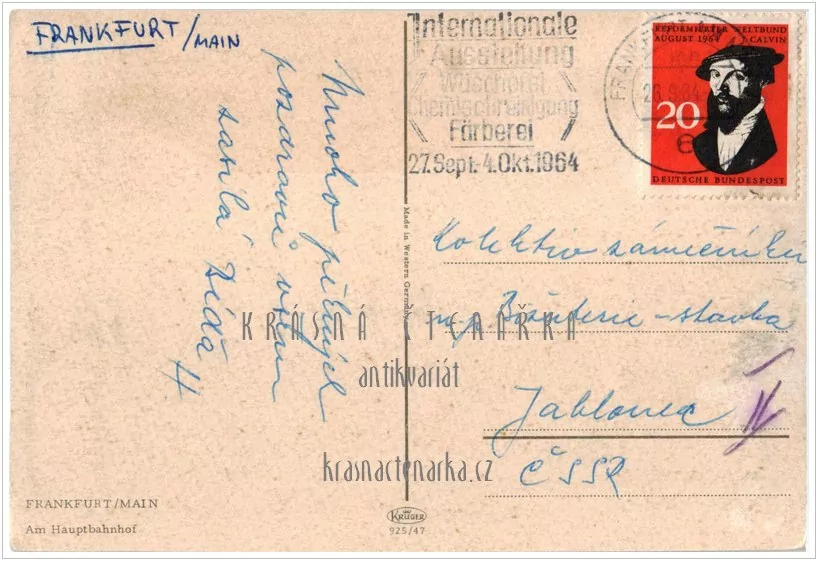 FRANKFURT/MAIN
Mnoho pěkných
pozdravů všem
zasílá Dědа H
Internationale
Ausstellung
Wäscherei
Chemischreinigung
Färberei
27.Sept.-4.Okt.1964
REFORMIERTER WELTBUND
AUGUST 1964 CALVIN
20
DEUTSCHE BUNDESPOST
Made in Western Germany
Kolektiv zámečníků
n.p. Bižuterie-stavba
Jablonec
ČSSR
KRÁSNÁ ČTENÁŘKA
antikvariát
krasnactenarka.cz
FRANKFURT/MAIN
Am Hauptbahnhof
KRÜGER
925/47